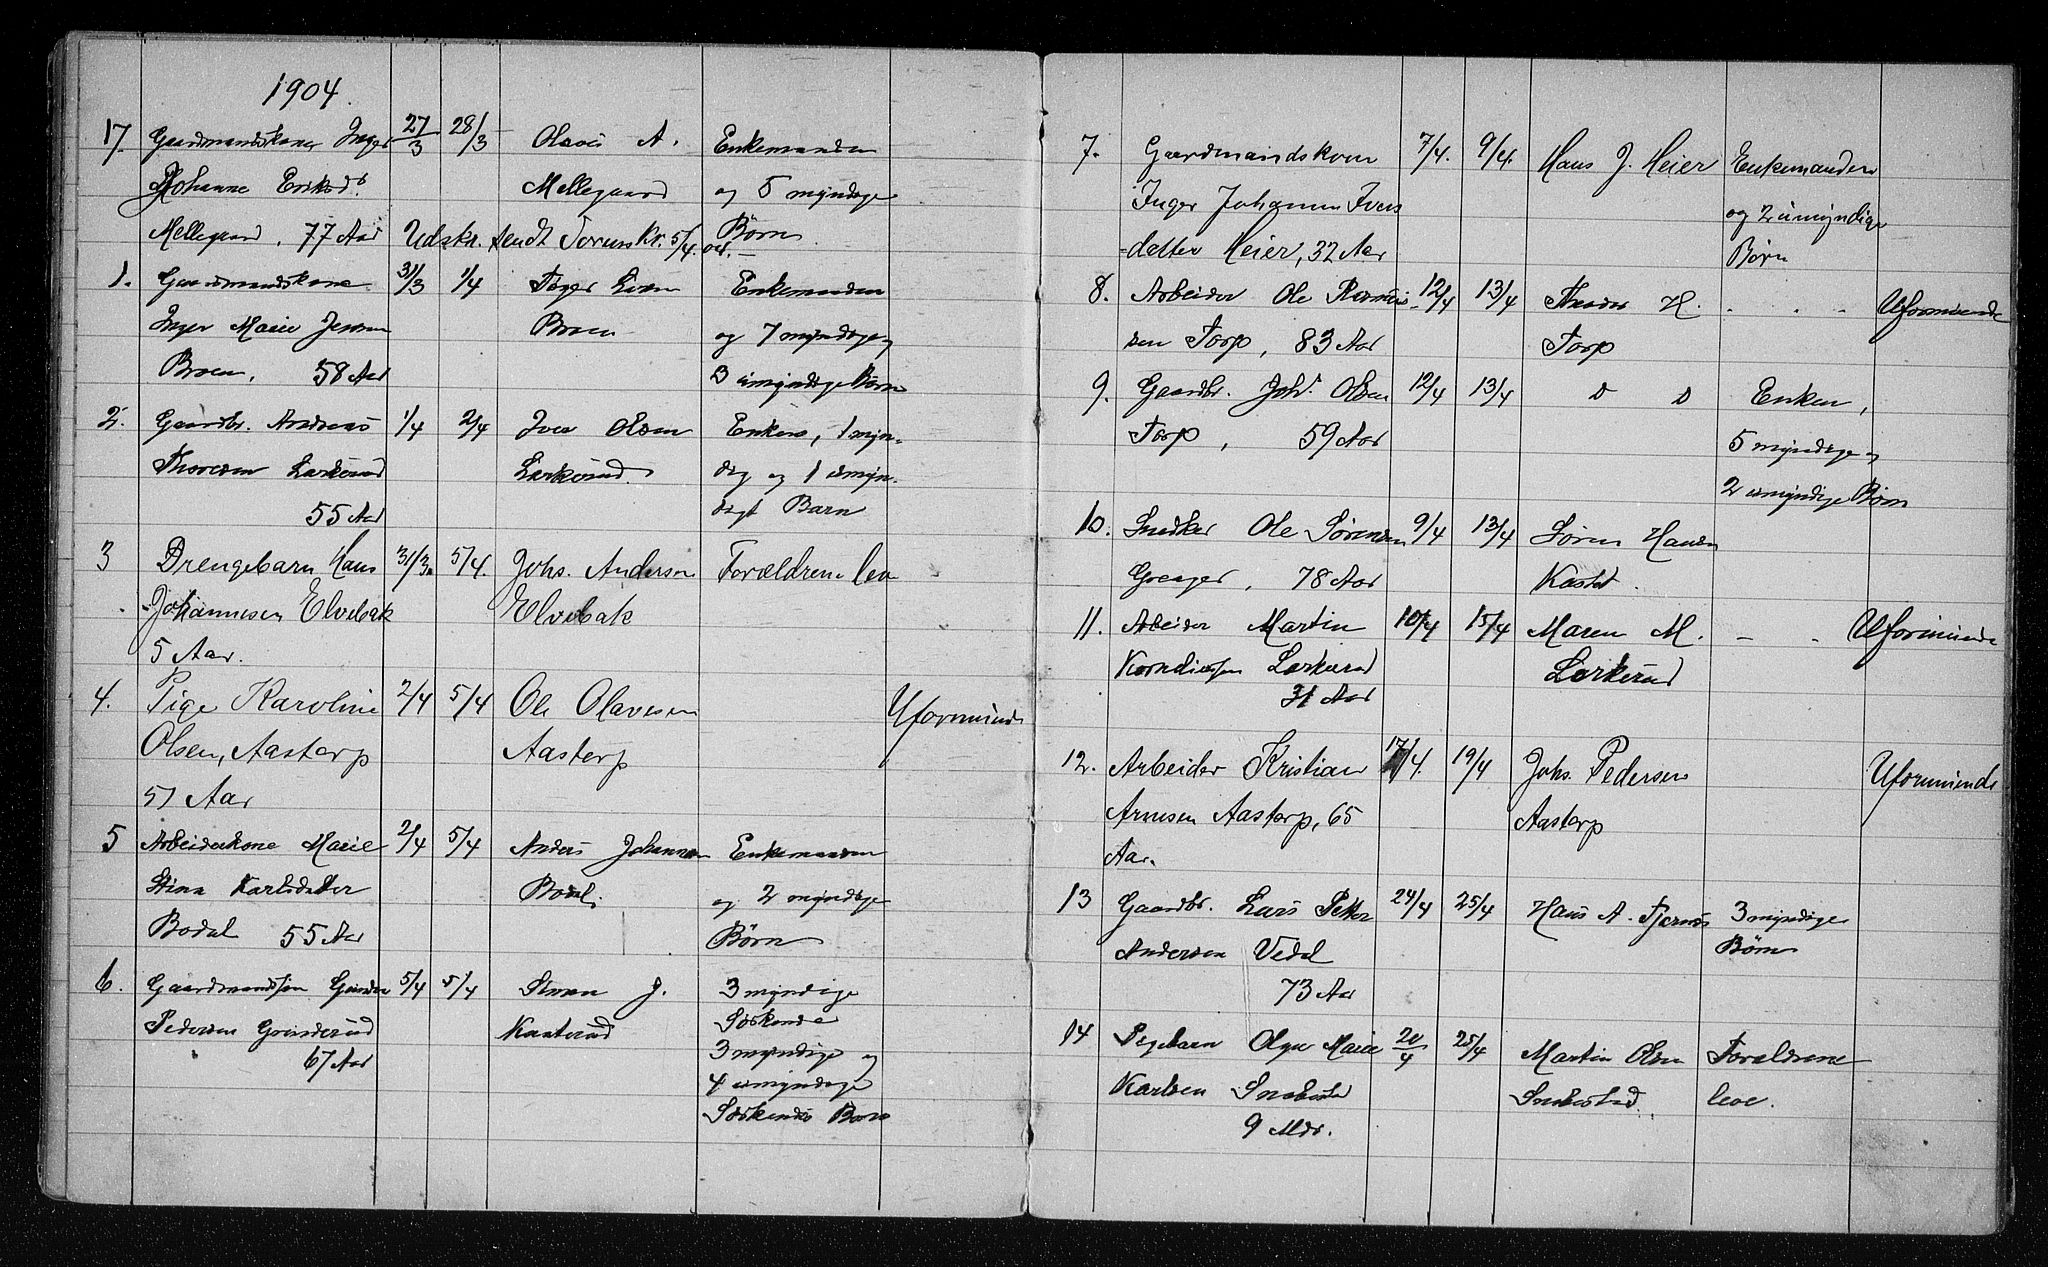 1904.
17. Gaardmandskone Inger 27/3 28/3 Olavis A. Enkemanden
Johanne Eriksd. Mellegaard og 5 myndige
Mellegaard, 77 Aar Udskr. sendt Sorenskr. 5/4. 04. Børn
1. Gaardmandskone 31/3 1/4 Enkemanden
Inger Marie Jensen Broen og 7 myndige og
Broen, 58 Aar 3 umyndige Børn
2. Gaardbr. Andreas 1/4 2/4 Iver Olsen Enken, 1 myn-
Thoresen Lerkerud Lerkerud. dig og 1 umyn-
55 Aar digt Barn
3 Drengebarn Hans 31/3. 5/4. Johs. Andersen Forældrene leve
Johannesen Elvebak Elvebak
5 Aar.
4. Pige Karoline 2/4 5/4 Ole Olavesen Uformuende
Olsen, Aastorp Aastorp
51 Aar
5 Arbeiderkone Marie 2/4 5/4 Anders Johannesen Enkemanden
Stina Karlsdatter Bodal. og 2 myndige
Bodal 55 Aar Børn
6. Gaardmandssøn Gunder 5/4 5/4 Simen J. 3 myndige
Pedersen Grinderud Kanterud Søskende
67 Aar 3 myndige og
4 umyndige
Søskendes Børn
7. Gaardmandskone 7/4. 9/4. Hans J. Heier Enkemanden
Inger Johanne Ivers og 2 umyndige
datter Heier, 32 Aar Børn
8. Arbeider Ole Rasmus- 12/4 13/4 H. Uformuende
sen Torp, 83 Aar Torp
9. Gaardbr. Johs. Olsen 12/4 13/4 Enken,
Torp, 59 Aar 5 myndige og
2 umyndige Børn
10. Snedker Ole Sørensen 9/4 13/4 Søren Hansen
78 Aar
11. Arbeider Martin 10/4 15/4 Maren M. Uformuende
Korneliussen Lerkerud Lerkerud
31 Aar
12. Arbeider Kristian 17/4. 19/4 Johs. Pedersen Uformuende
Arnesen Aastorp, 65 Aastorp
Aar.
13 Gaardbr. Lars Petter 24/4 25/4 Hans A. Tjernes 3 myndige
Andersen Vedal Børn
73 Aar
14 Pigebarn Olga Marie 20/4 25/4 Martin Olsen Forældrene
Karlsen leve.
9 Mdr.